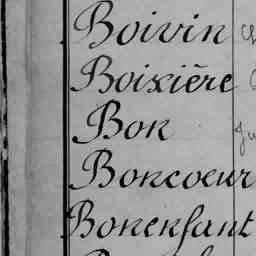 Boivin
Boixière
Bon
Boncoeur
Bonenfant